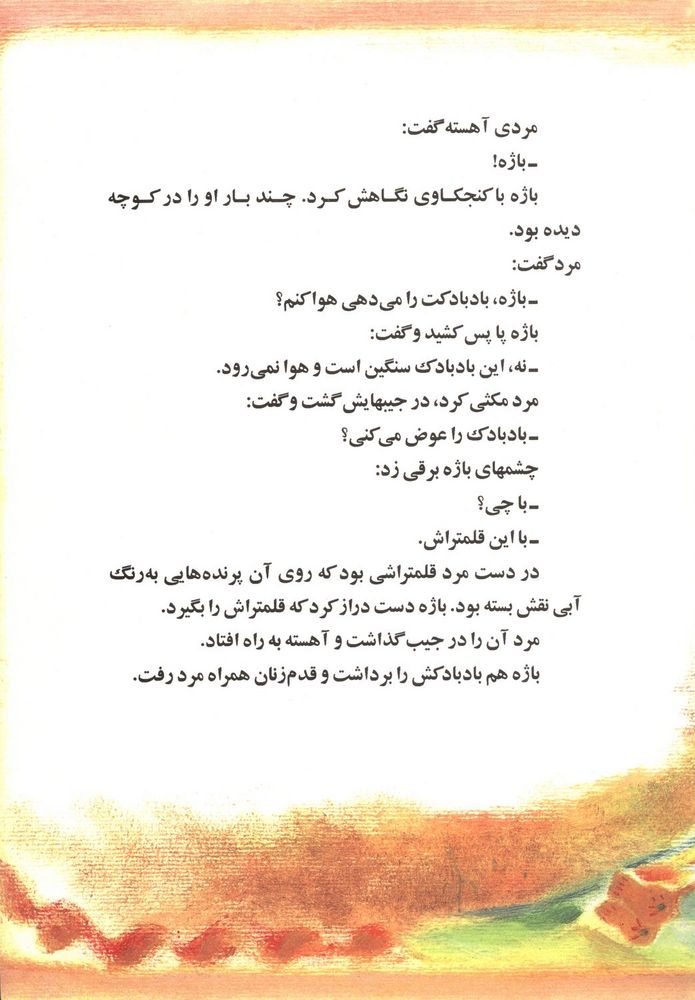 مردی آهسته گفت:
ـ باژه!
باژه با کنجکاوی نگاهش کرد. چند بار او را در کوچه
دیده بود.
مرد گفت:
ـ باژه، بادبادکت را می‌دهی هوا کنم؟
باژه پا پس کشید و گفت:
ـ نه، این بادبادک سنگین است و هوا نمی‌رود.
مرد مکثی کرد، در جیبهایش گشت و گفت:
ـ بادبادک را عوض می‌کنی؟
چشمهای باژه برقی زد:
ـ با چی؟
ـ با این قلمتراش.
در دست مرد قلمتراشی بود که روی آن پرنده‌هایی به‌رنگ
آبی نقش بسته بود. باژه دست دراز کرد که قلمتراش را بگیرد.
مرد آن را در جیب گذاشت و آهسته به راه افتاد.
باژه هم بادبادکش را برداشت و قدم‌زنان همراه مرد رفت.